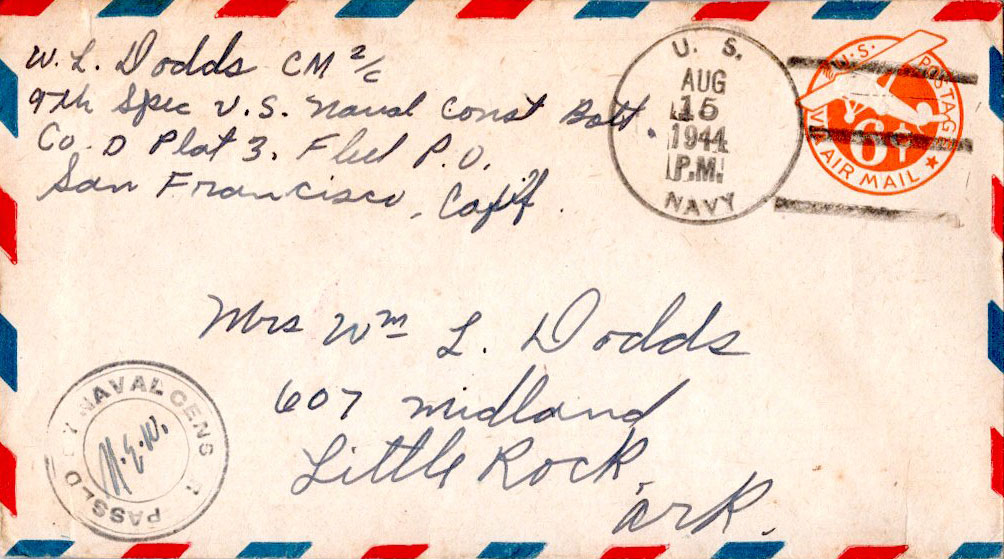 W. L. Dodds CM 2/c
9th Spec U.S. Naval Const Batt.
Co. D Plat 3, Fleet P.O.
San Francisco, Calif.
U. S.
AUG
15
1944
P.M.
NAVY
U.S. POSTAGE
6¢
VIA AIR MAIL
Mrs Wm L. Dodds
607 Midland
Little Rock,
Ark.
PASSED BY NAVAL CENS